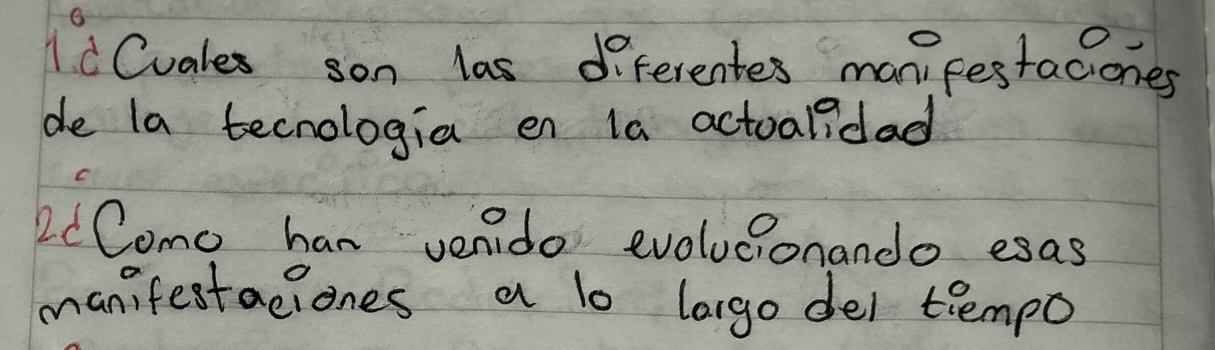 1.¿Cuales son las diferentes manifestaciones
de la tecnología en la actualidad
2¿Como han venido evolucionando esas
manifestaciones a lo largo del tiempo